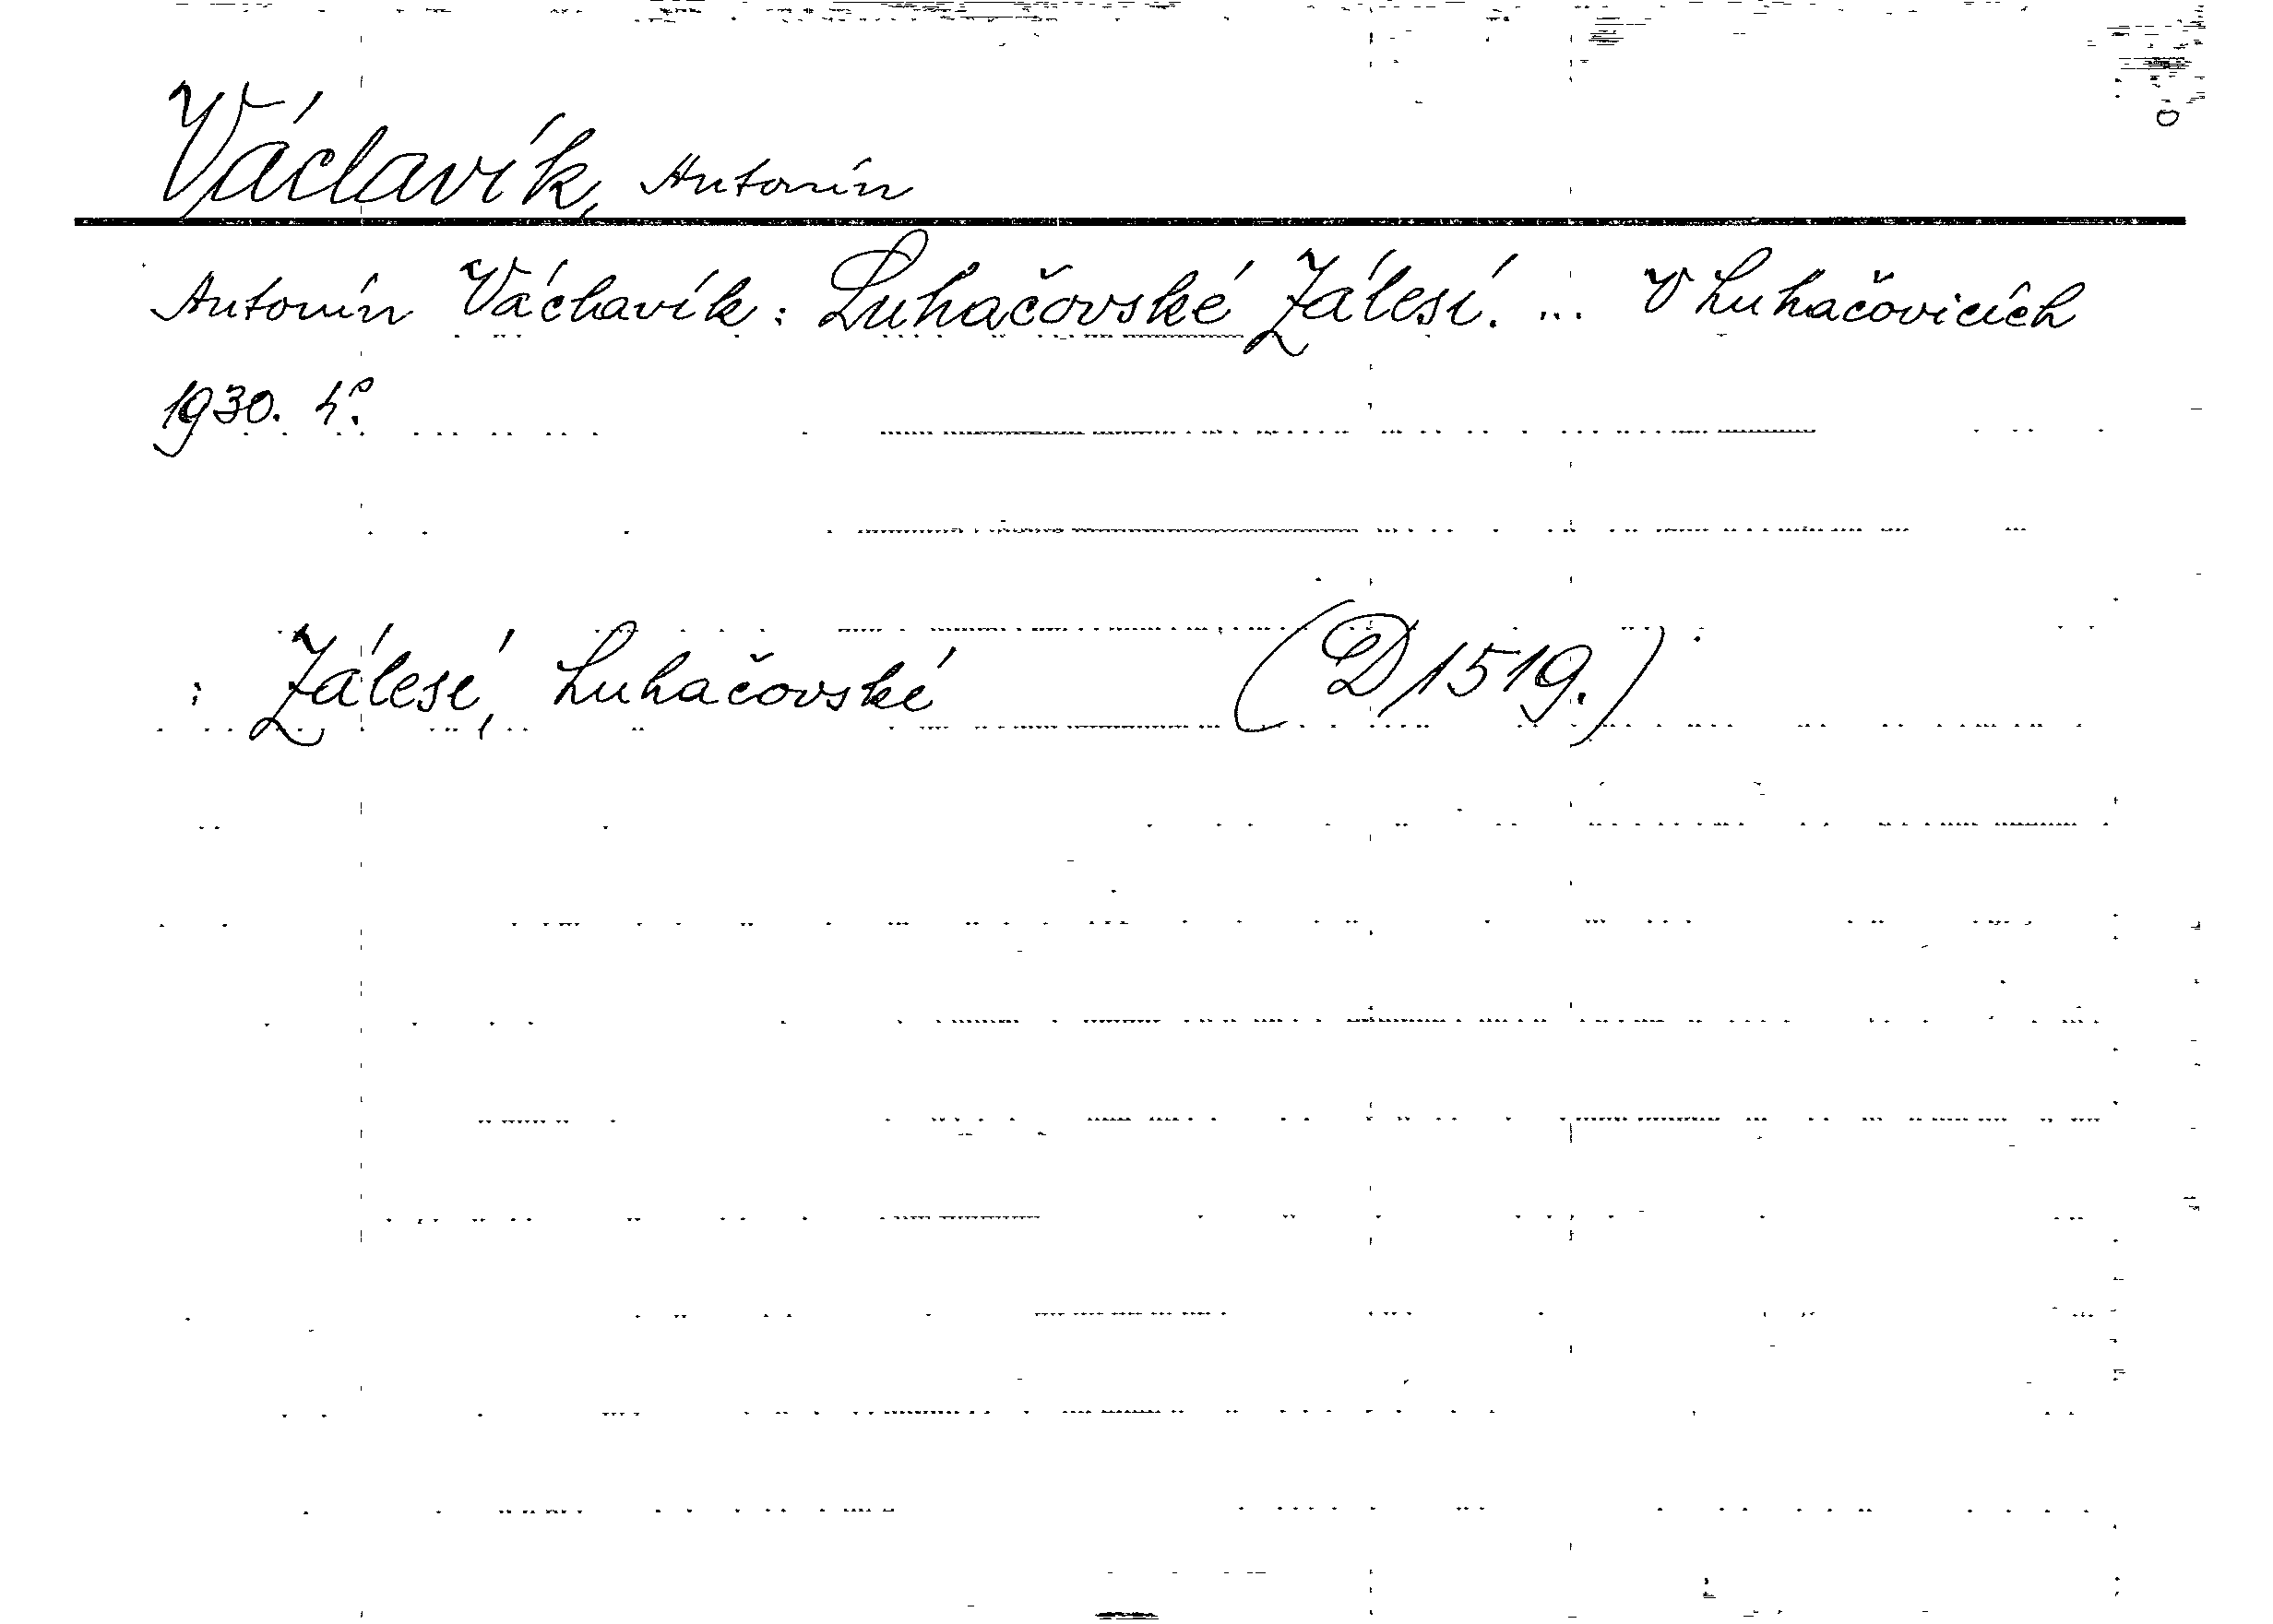 Václavík, Antonín
Antonín Václavík: Luhačovské Zálesí. ... V Luhačovicích
1930. 4°.
: Zálesí, Luhačovské (D 1519.)